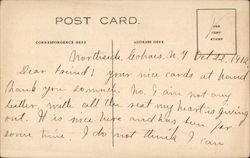 POST CARD.
CORRESPONDENCE HERE
ADDRESS HERE
ONE CENT STAMP
Northside, Cohoes, N.Y. Oct 23, 191
Dear Friend; your nice cards at hand
thank you so much. No. I am not any
better, with all the rest my heart is giving
out. It is nice here and has been for
some time. I do not think I can